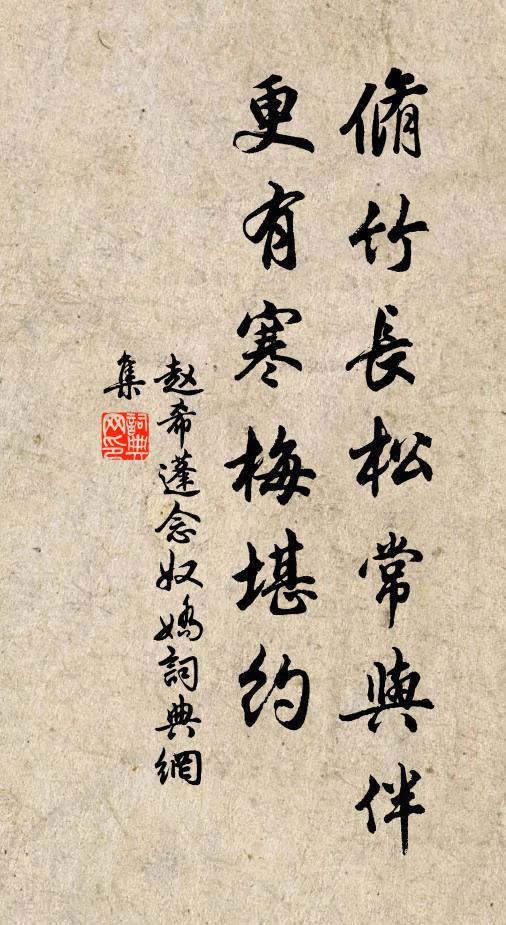 脩竹長松常與伴
更有寒梅堪約
赵希蓬念奴嬌詞典網
集
詞典
网印